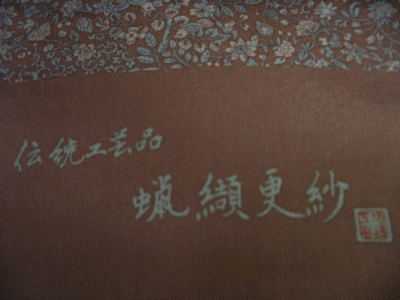 伝統工芸品
蝋纈更紗